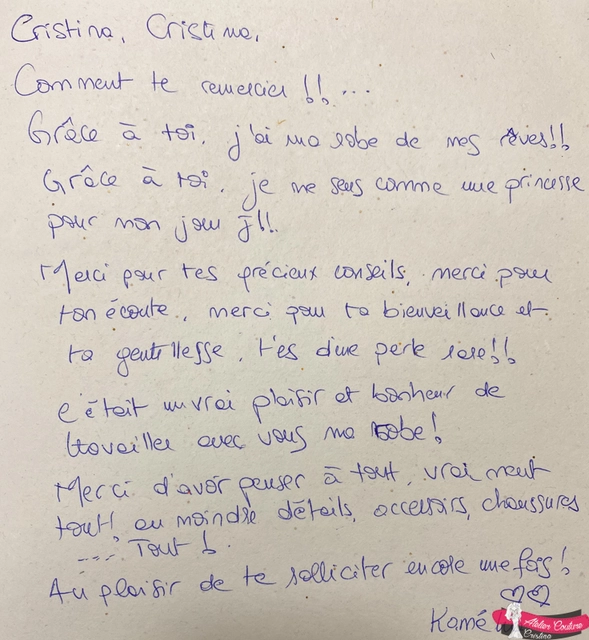 Cristina, Cristina,
Comment te remercier !! ...
Grâce à toi, j'ai ma robe de mes rêves!!
Grâce à toi, je me sens comme une princesse
pour mon jour J!!
Merci pour tes précieux conseils, merci pour
ton écoute, merci pour ta bienveillance et
ta gentillesse, t'es d'une perle rare!!
c'était un vrai plaisir et bonheur de
travailler avec vous ma robe!
Merci d'avoir penser à tout, vraiment
tout! au moindre détails, accessoirs, chaussures
.... Tout !
Au plaisir de te solliciter encore une fois!
Atelier Couture
Cristina